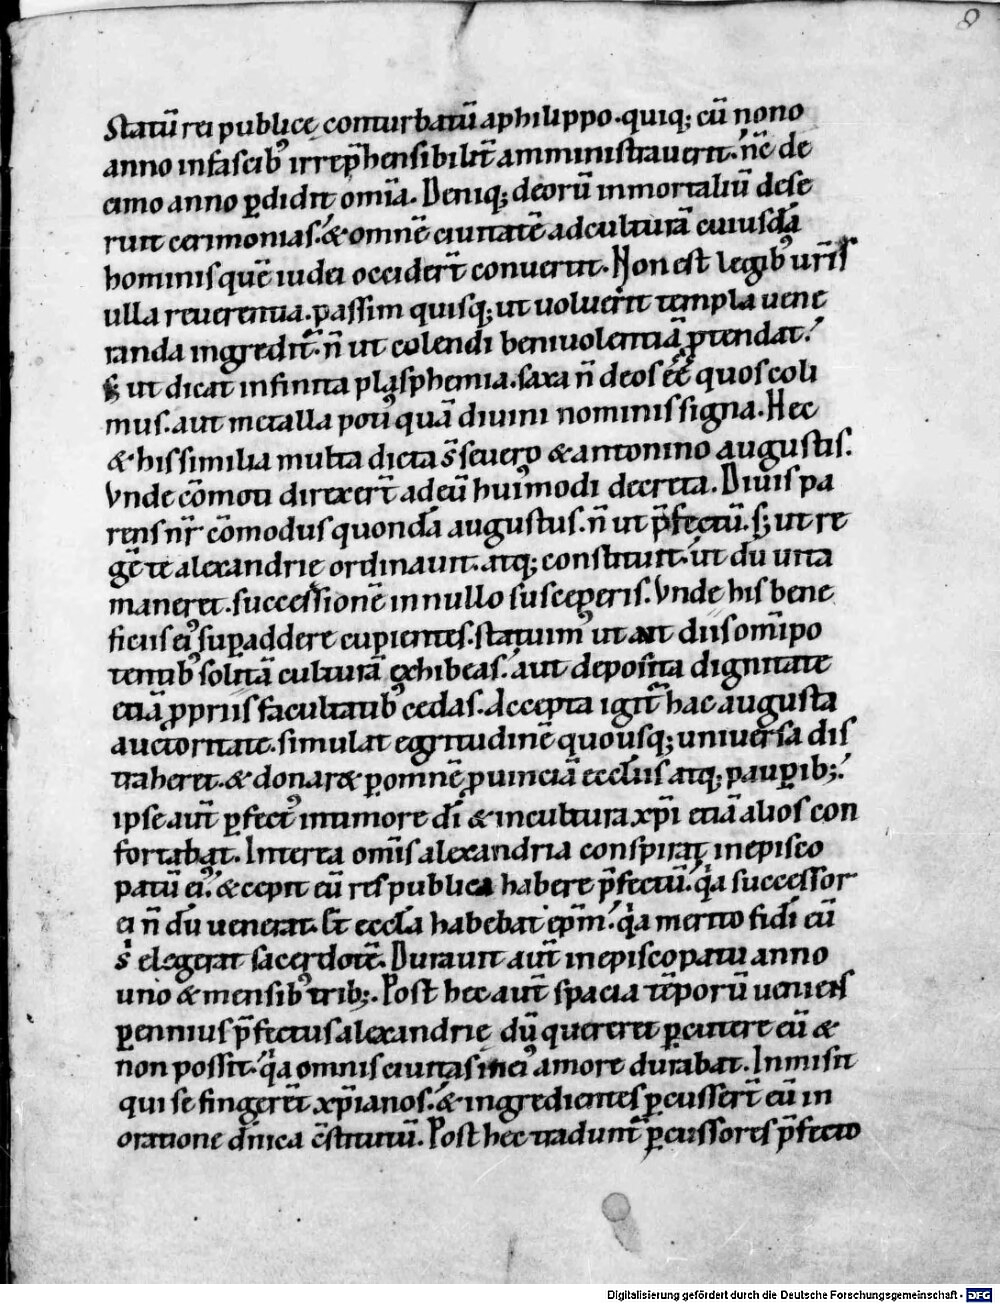 8
Statū rei publicę conturbatū a philippo. quiq; cū nono
anno in fascib᷒ irrep̄hensibilit̄ amministrauerit. n̄c de
cimo anno ꝑdidit om̄ia. Deniq; deorū inmortaliū dese
ruit cerimonias. & omnē ciuitatē ad culturā cuiusdā
hominis quē iudei occidert̄ conuertit. Non est legib᷒ ur̄is
ulla reuerentia. passim quisq; ut uoluerit templa uene
randa ingredit᷑. n̄ ut colendi beniuolentiā ꝓtendat.
s; ut dicat infinita plasphemia. saxa n̄ deos eē quos coli
mus. aut metalla poti᷒ quā diuini nominis signa. Hec
& his similia multa dicta s̄ seuero & antonino augustis.
Vnde cōmoti direxert̄ ad eū hui᷒modi decreta. Diuus pa
rens nr̄ cōmodus quondā augustus. n̄ ut p̄fectū. s; ut re
gē te alexandrię ordinauit. atq; constituit. ut dū uita
maneret. successionē in nullo susceperis. Vnde his bene
ficiis ei᷒ supaddere cupientes. statuim᷒ ut aut diis om̄ipo
tentib᷒ solitā culturā exhibeas. aut deposita dignitate
etiā ꝓpriis facultatib᷒ cedas. Accepta igit᷑ hac augusta
auctoritate. simulat egritudinē quousq; uniuersa dis
traheret. & donaret ꝑ omnē ꝓuinciā eccl̄iis atq; pauꝑib;.
ipse aut̄ ꝑfect᷒ in timore dī & in cultura xp̄i etiā alios con
fortabat. Interea om̄is alexandria conspirat in episco
patū ei᷒. & cepit eū res publica habere p̄fectū. q̇a successor
ei n̄ dū uenerat. Et eccl̄a habebat ep̄m. q̇a merito fidi eū
s̓ elegerat sacerdotē. Durauit aut̄ in episcopatu anno
uno & mensib᷒ trib;. Post hec aut̄ spacia tēporū ueniens
ꝑennius p̄fectus alexandrię dū quereret ꝑcutere eū &
non possit. q̇a omnis ciuitas in ei᷒ amore durabat. Inmisit
qui se fingerēt xp̄ianos. & ingredientes ꝑcussert̄ eū in
oratione dn̄ica c̄stitutū. Post hec tradunt᷑ ꝑcussores p̄fecto
Digitalisierung gefördert durch die Deutsche Forschungsgemeinschaft - DFG